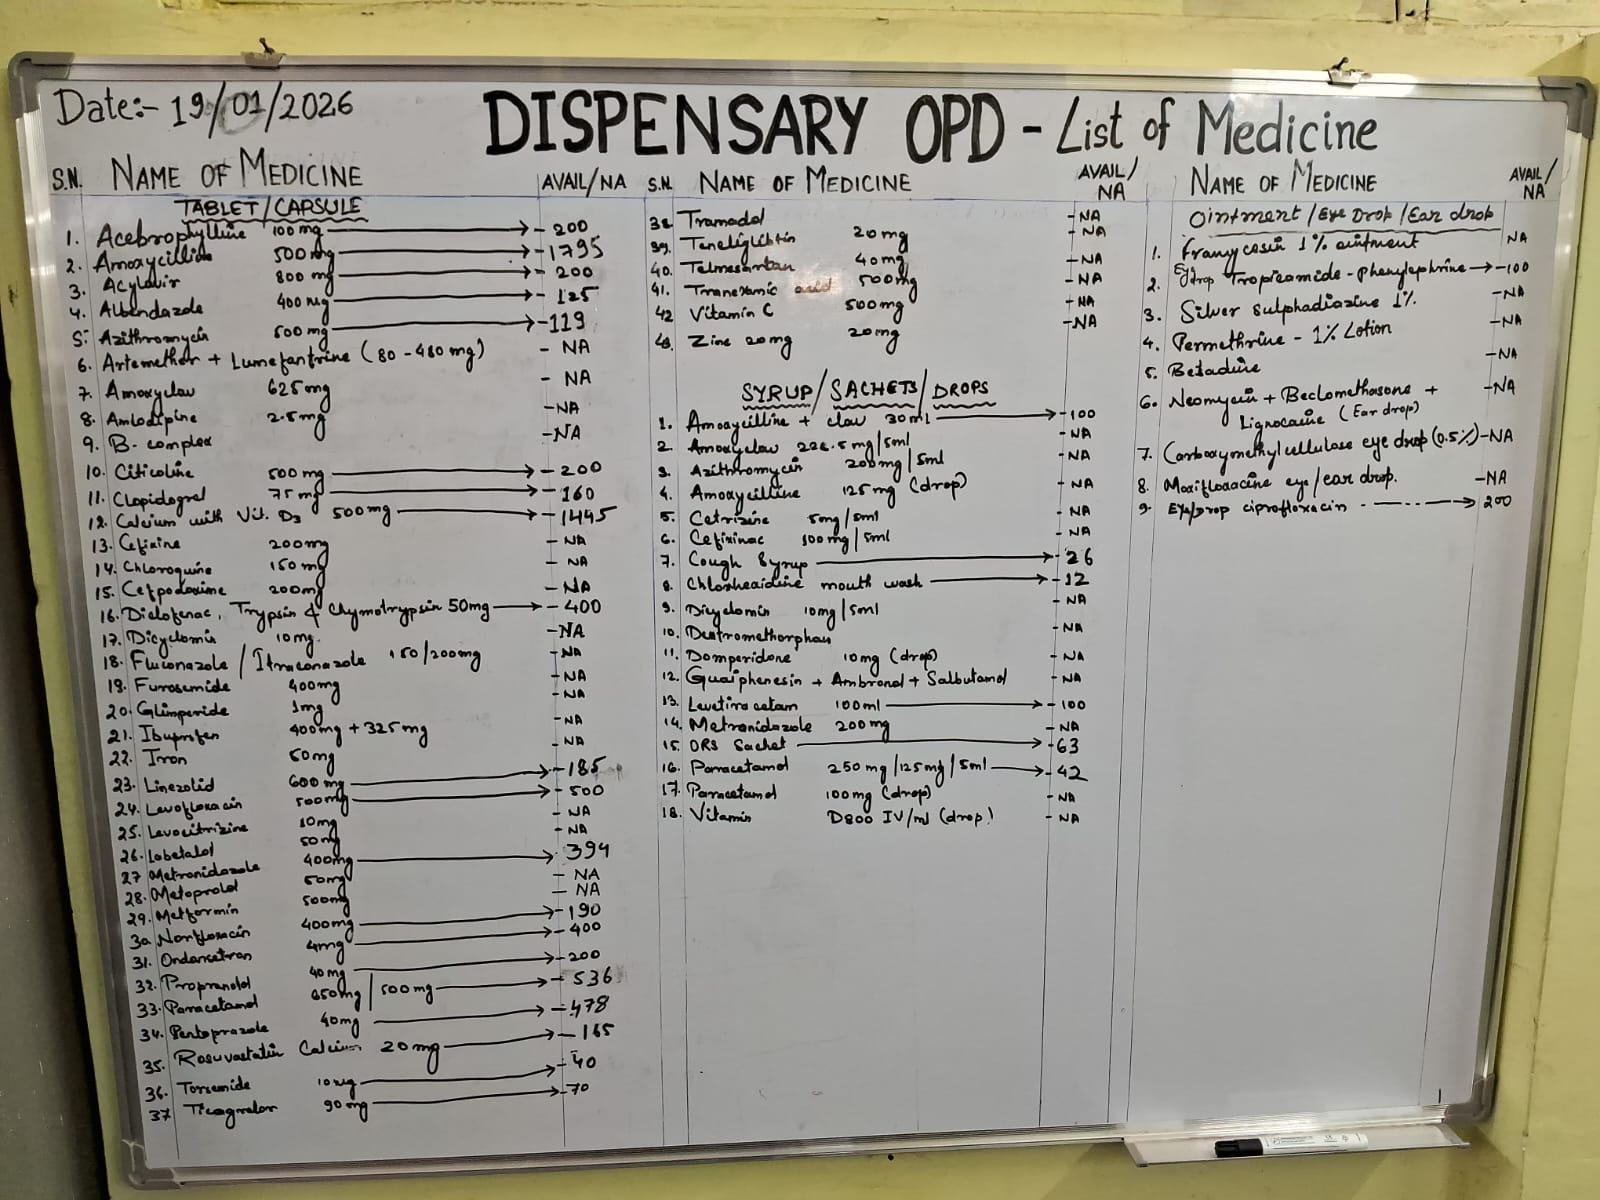 Date:- 19/01/2026
DISPENSARY OPD - List of Medicine
S.N. NAME OF MEDICINE AVAIL/NA
TABLET/CAPSULE
1. Acebrophylline 100mg - 200
2. Amoxycilline 500mg - 1795
3. Acylovir 800mg - 200
4. Albendazole 400mg - 125
5. Azithromycin 500mg - 119
6. Artemether + Lumefantrine (80-480mg) - NA
7. Amoxyclav 625mg - NA
8. Amlodipine 2.5mg - NA
9. B-complex - NA
10. Citicoline 500mg - 200
11. Clopidogrel 75mg - 160
12. Calcium with Vit. D3 500mg - 1445
13. Cefixine 200mg - NA
14. Chloroquine 150mg - NA
15. Cefpodoxime 200mg - NA
16. Diclofenac, Trypsin & Chymotrypsin 50mg - 400
17. Dicyclomin 10mg. - NA
18. Fluconazole / Itraconazole 150/200mg - NA
19. Furosemide 400mg - NA
20. Glimperide 1mg - NA
21. Ibuprofen 400mg + 325mg - NA
22. Iron 50mg - NA
23. Linezolid 600mg - 185
24. Levofloxacin 500mg - 500
25. Levocitrizine 10mg - NA
26. Labetalol 50mg - NA
27 Metronidazole 400mg - 394
28. Metoprolol 50mg - NA
29. Metformin 500mg - NA
30 Norfloxacin 400mg - 190
31. Ondancetron 4mg - 400
32. Propranolol 40mg - 200
33. Paracetamol 650mg / 500mg - 536
34. Pentoprazole 40mg - 478
35. Rosuvastatin Calcium 20mg - 165
36. Torsemide 10mg - 40
37 Ticagrelor 90mg - 70
S.N. NAME OF MEDICINE AVAIL/NA
38. Tramadol - NA
39. Teneliglibtin 20mg - NA
40. Telmesartan 40mg - NA
41. Tranexamic acid 500mg - NA
42 Vitamin C 500mg - NA
43. Zinc 20mg 20mg - NA
SYRUP/SACHETS/DROPS
1. Amoxycilline + clav 30ml - 100
2. Amoxyclav 228.5mg/5ml - NA
3. Azithromycin 200mg/5ml - NA
4. Amoxycilline 125mg (drop) - NA
5. Cetrizine 5mg/5ml - NA
6. Cefixinac 100mg/5ml - NA
7. Cough Syrup - 26
8. Chlorhexidine mouth wash - 12
9. Dicyclomin 10mg/5ml - NA
10. Dextromethorphan - NA
11. Domperidone 10mg (drop) - NA
12. Guaiphenesin + Ambronol + Salbutamol - NA
13. Levetiracetam 100ml - 100
14. Metronidazole 200mg - NA
15. ORS Sachet - 63
16. Paracetamol 250mg/125mg/5ml - 42
17. Paracetamol 100mg (drop) - NA
18. Vitamin D800 IV/ml (drop) - NA
NAME OF MEDICINE AVAIL/NA
Ointment / Eye Drop / Ear drop
1. Framycosin 1% ointment NA
2. Eye drop Tropicamide-phenylephrine - 100
3. Silver sulphadiazine 1% - NA
4. Permethrine - 1% Lotion - NA
5. Betadine - NA
6. Neomycin + Beclomethasone + - NA
Lignocaine (Ear drop)
7. Carboxymethyl cellulose eye drop (0.5%) - NA
8. Moxifloxacine eye/ear drop. - NA
9. Eye/Drop ciprofloxacin - 200